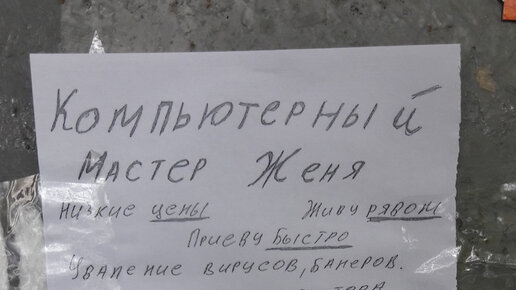 Компьютерный
Мастер Женя
Низкие цены Живу рядом
Приеду быстро
Удаление вирусов, банеров.